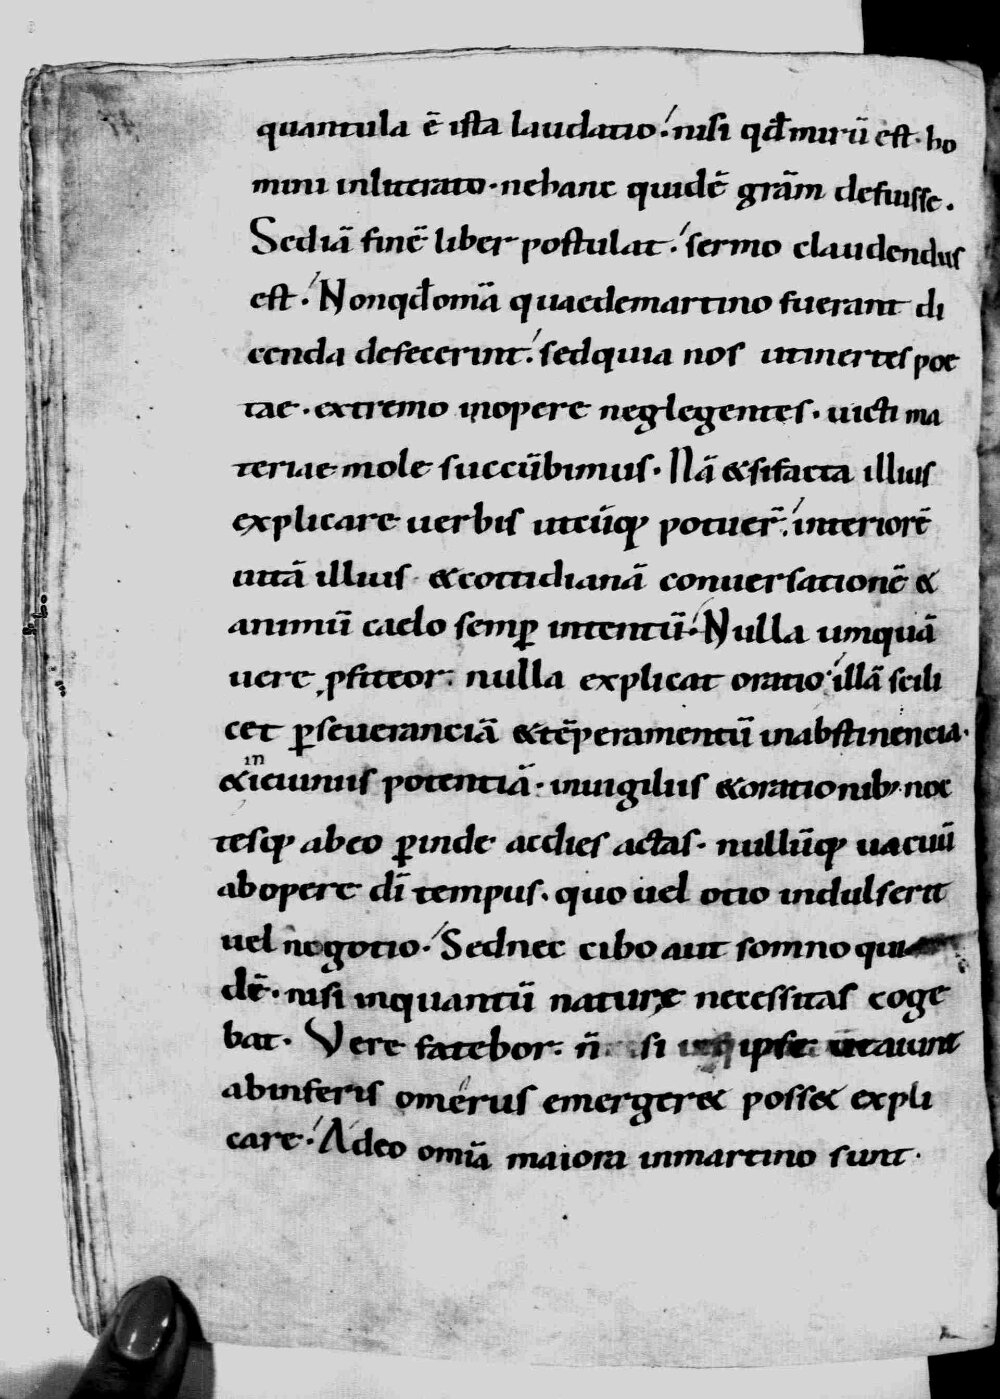 quantula ē ista laudatio. nisi qđ mirū est. ho
mini inlitterato. ne hanc quidē grām defuisse.
Sed iā finē liber postulat. sermo claudendus
est. Non qđ omīa quae de martino fuerant di
cenda defecerint. sed quia nos ut inertes poe
tae. extremo in opere neglegentes. uicti ma
teriae mole succūbimus. Nā & si facta illius
explicare uerbis utcūq; potuer̄. interiorē
uitā illius & cottidianā conuersationē &
animū caelo semꝑ intentū. Nulla umquā
uere ꝓfiteor. nulla explicat oratio. illā scili
cet ꝑseueranciā & tēperamentū in abstinencia.
& in ieiuniis potentiā. in uigiliis & orationib; noc
tesq; ab eo ꝑinde ac dies actas. nullūq; uacuū
ab opere dī tempus. quo uel otio indulserit
uel negotio. Sed nec cibo aut somno qui
dē. nisi in quantū naturę necessitas coge
bat. Vere fatebor. n̄ si ipse ut aiunt
ab inferis omerus emerger& poss& expli
care. Adeo omīa maiora in martino sunt.